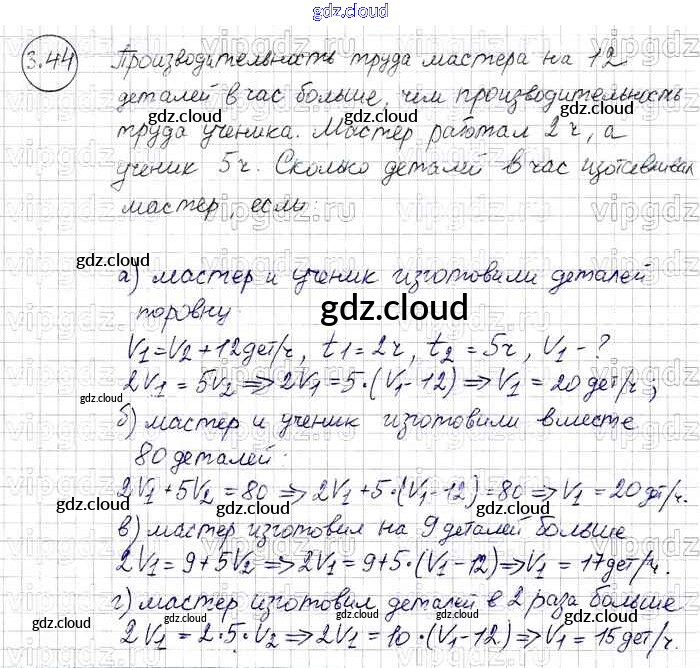 gdz.cloud
3.44 Производительность труда мастера на 12
деталей в час больше, чем производительность
труда ученика. Мастер работал 2 ч, а
ученик 5 ч. Сколько деталей в час изготавливал
мастер, если:
а) мастер и ученик изготовили деталей
поровну
V₁ = V₂ + 12 дет/ч, t₁ = 2 ч, t₂ = 5 ч, V₁ - ?
2V₁ = 5V₂ => 2V₁ = 5·(V₁ - 12) => V₁ = 20 дет/ч;
б) мастер и ученик изготовили вместе
80 деталей.
2V₁ + 5V₂ = 80 => 2V₁ + 5·(V₁ - 12) = 80 => V₁ = 20 дт/ч.
в) мастер изготовил на 9 деталей больше
2V₁ = 9 + 5V₂ => 2V₁ = 9 + 5·(V₁ - 12) => V₁ = 17 дет/ч.
г) мастер изготовил деталей в 2 раза больше
2V₁ = 2·5·V₂ => 2V₁ = 10·(V₁ - 12) => V₁ = 15 дет/ч.